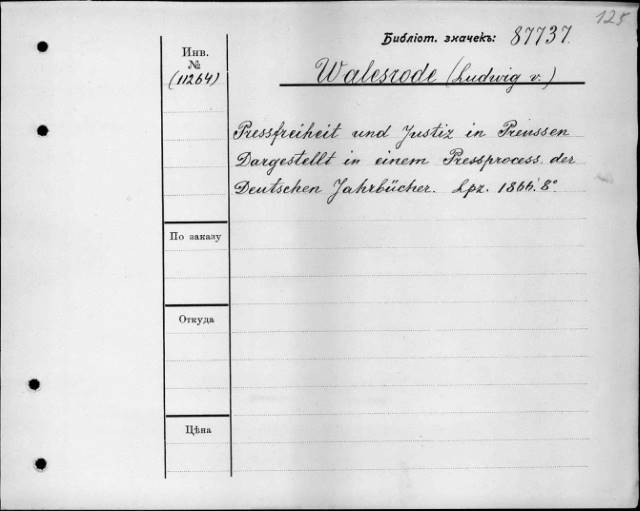 125
Библіот. значекъ: 87737.
Инв.
№
(11264)
Walesrode (Ludwig v.)
Pressfreiheit und Justiz in Preussen
Dargestellt in einem Pressprocess der
Deutschen Jahrbücher. Lpz. 1864. 8°
По заказу
Откуда
Цѣна